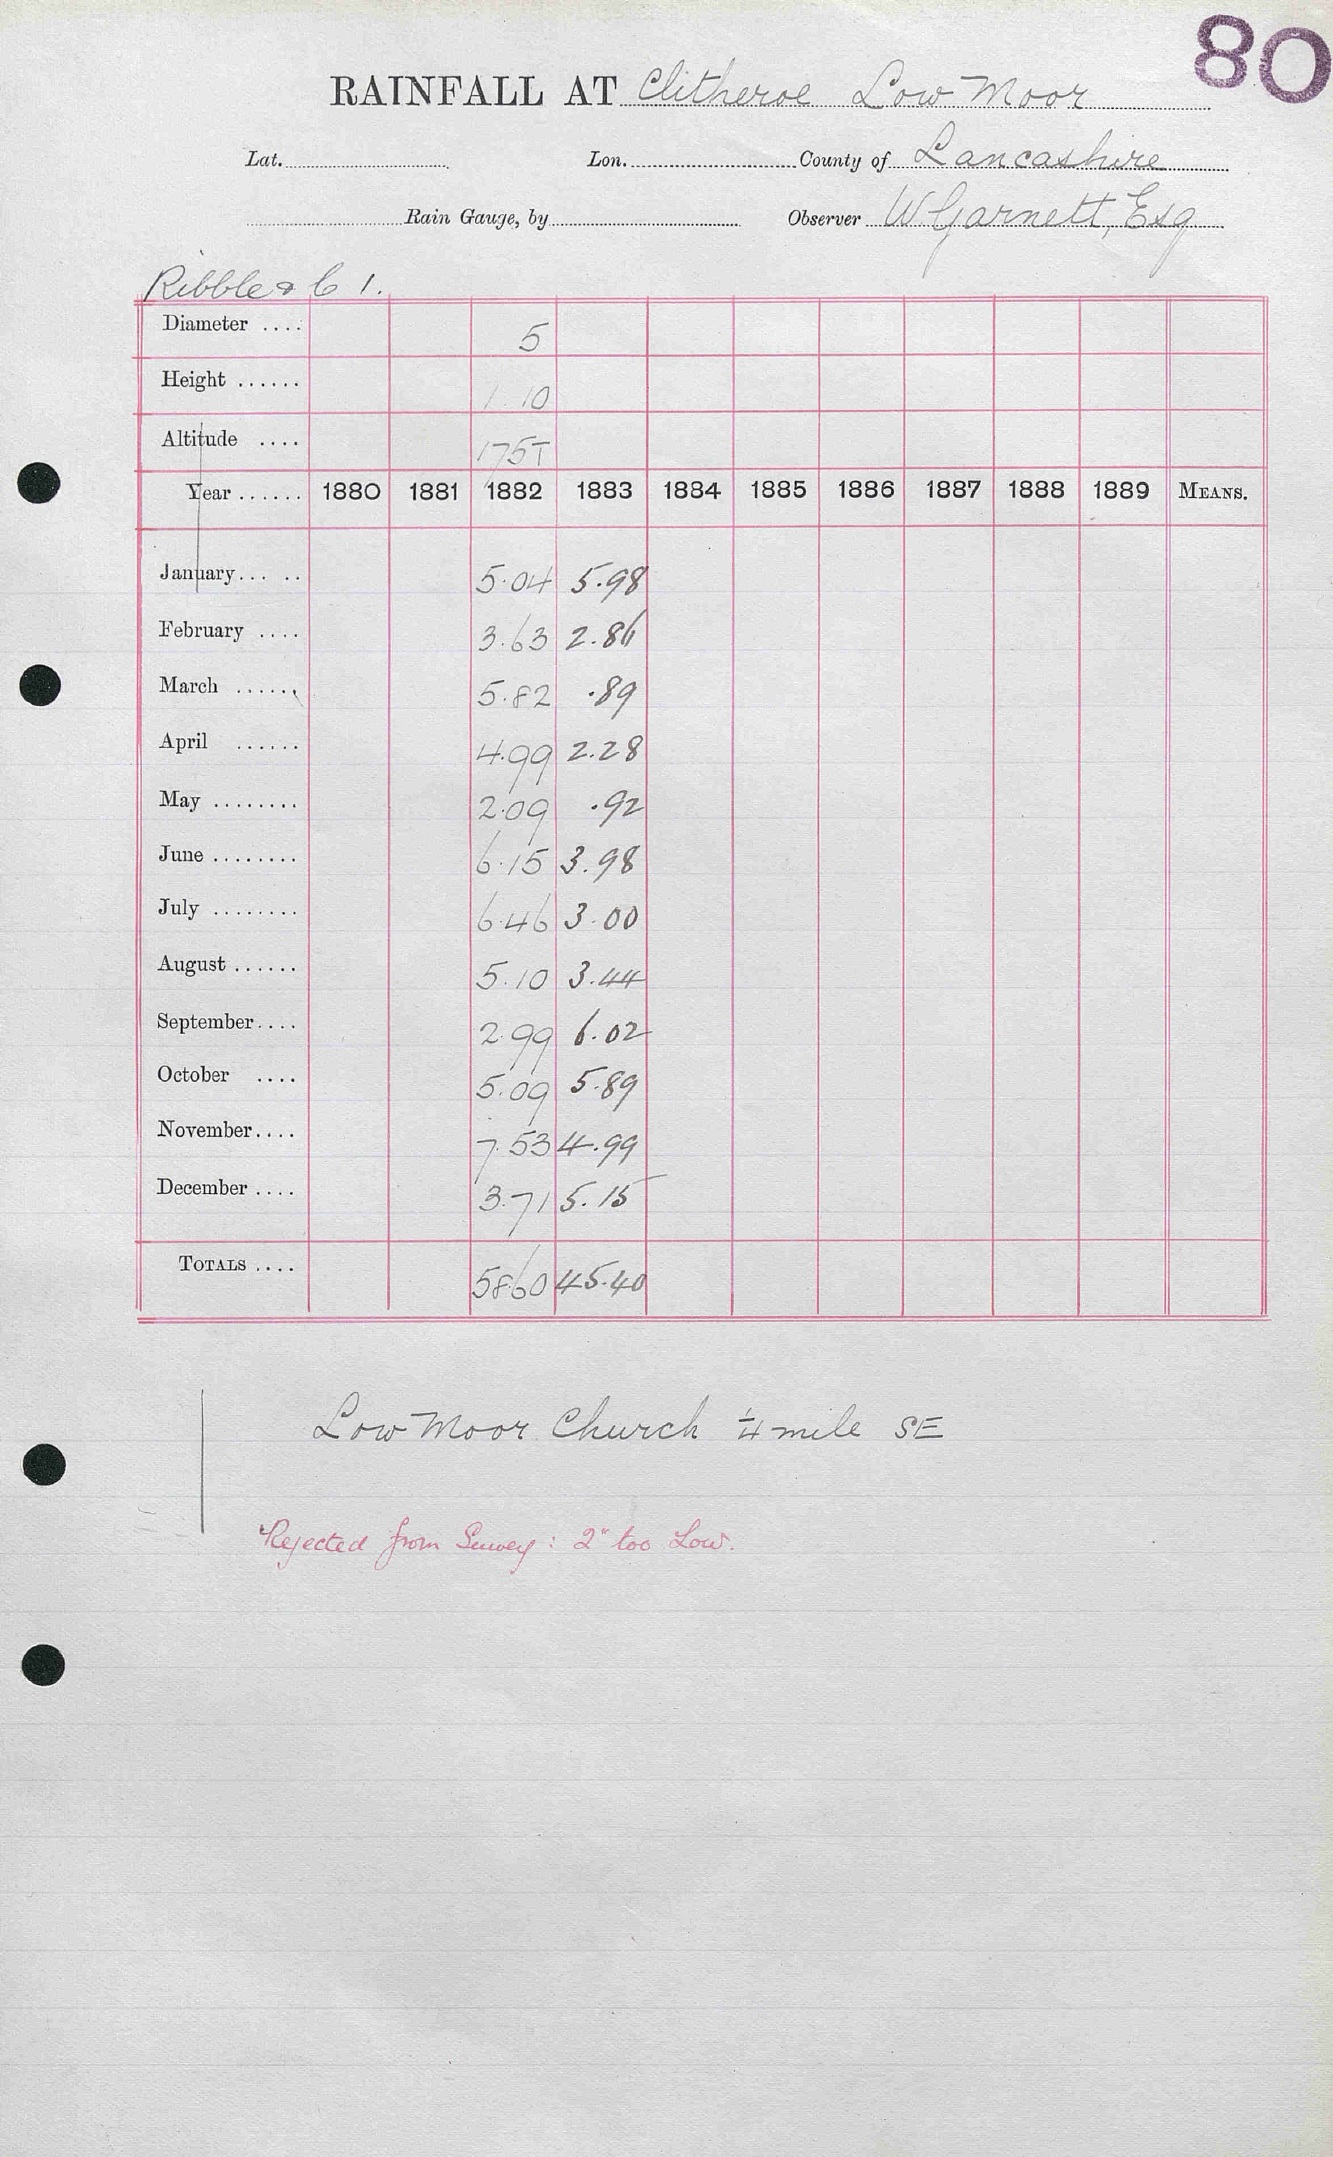 80
RAINFALL AT Clitheroe Low Moor
Lat. Lon. County of Lancashire
Rain Gauge, by Observer W Garnett, Esq
Ribble & C 1.
Diameter .... 5
Height ...... 1 10
Altitude .... 175T
Year ...... 1880 1881 1882 1883 1884 1885 1886 1887 1888 1889 MEANS.
January... .. 5.04 5.98
February .... 3.63 2.86
March ...... 5.82 .89
April ...... 4.99 2.28
May ........ 2.09 .92
June ........ 6.15 3.98
July ........ 6.46 3.00
August ...... 5.10 3.44
September.... 2.99 6.02
October .... 5.09 5.89
November.... 7.53 4.99
December .... 3.71 5.15
TOTALS .... 58.60 45.40
Low Moor Church ¼ mile SE
Rejected from Survey: 2" too Low.